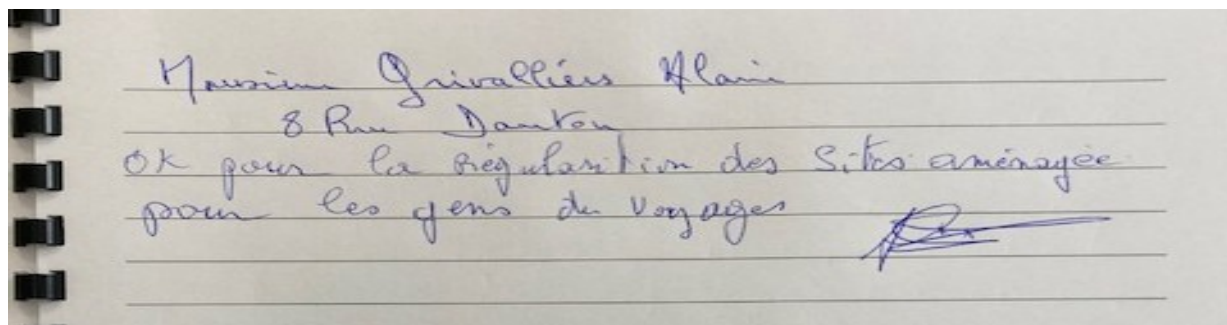 Monsieur Grivalliers Alain
8 Rue Danton
OK pour la régularition des Sites aménagée
pour les gens du Voyages